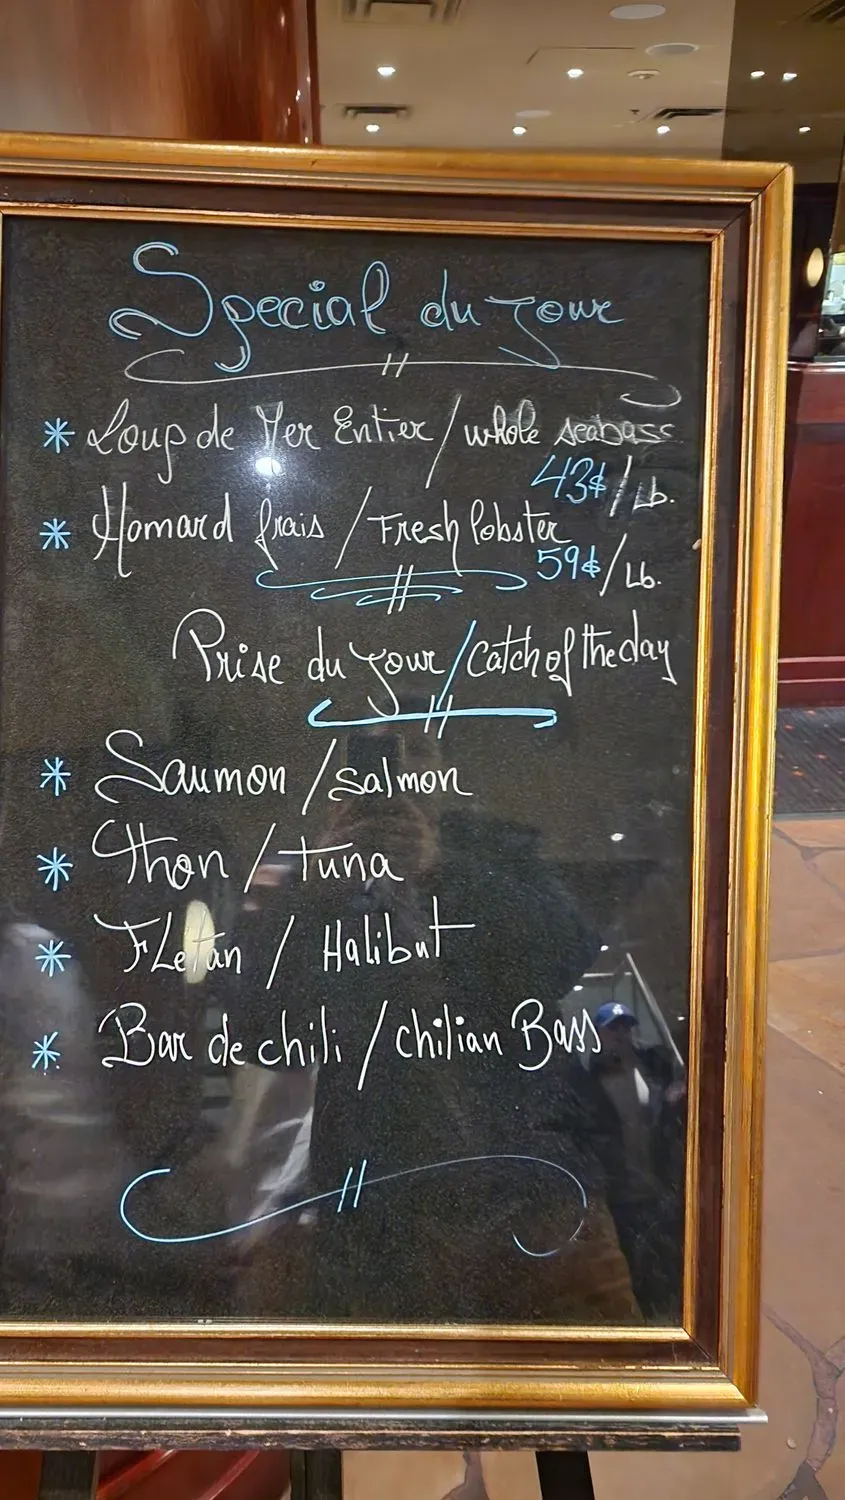 Special du jour
* Loup de Mer Entier / whole seabass
43$ / Lb.
* Homard frais / Fresh lobster
59$ / Lb.
Prise du jour / Catch of the day
* Saumon / salmon
* Thon / Tuna
* FLetan / Halibut
* Bar de chili / chilian Bass